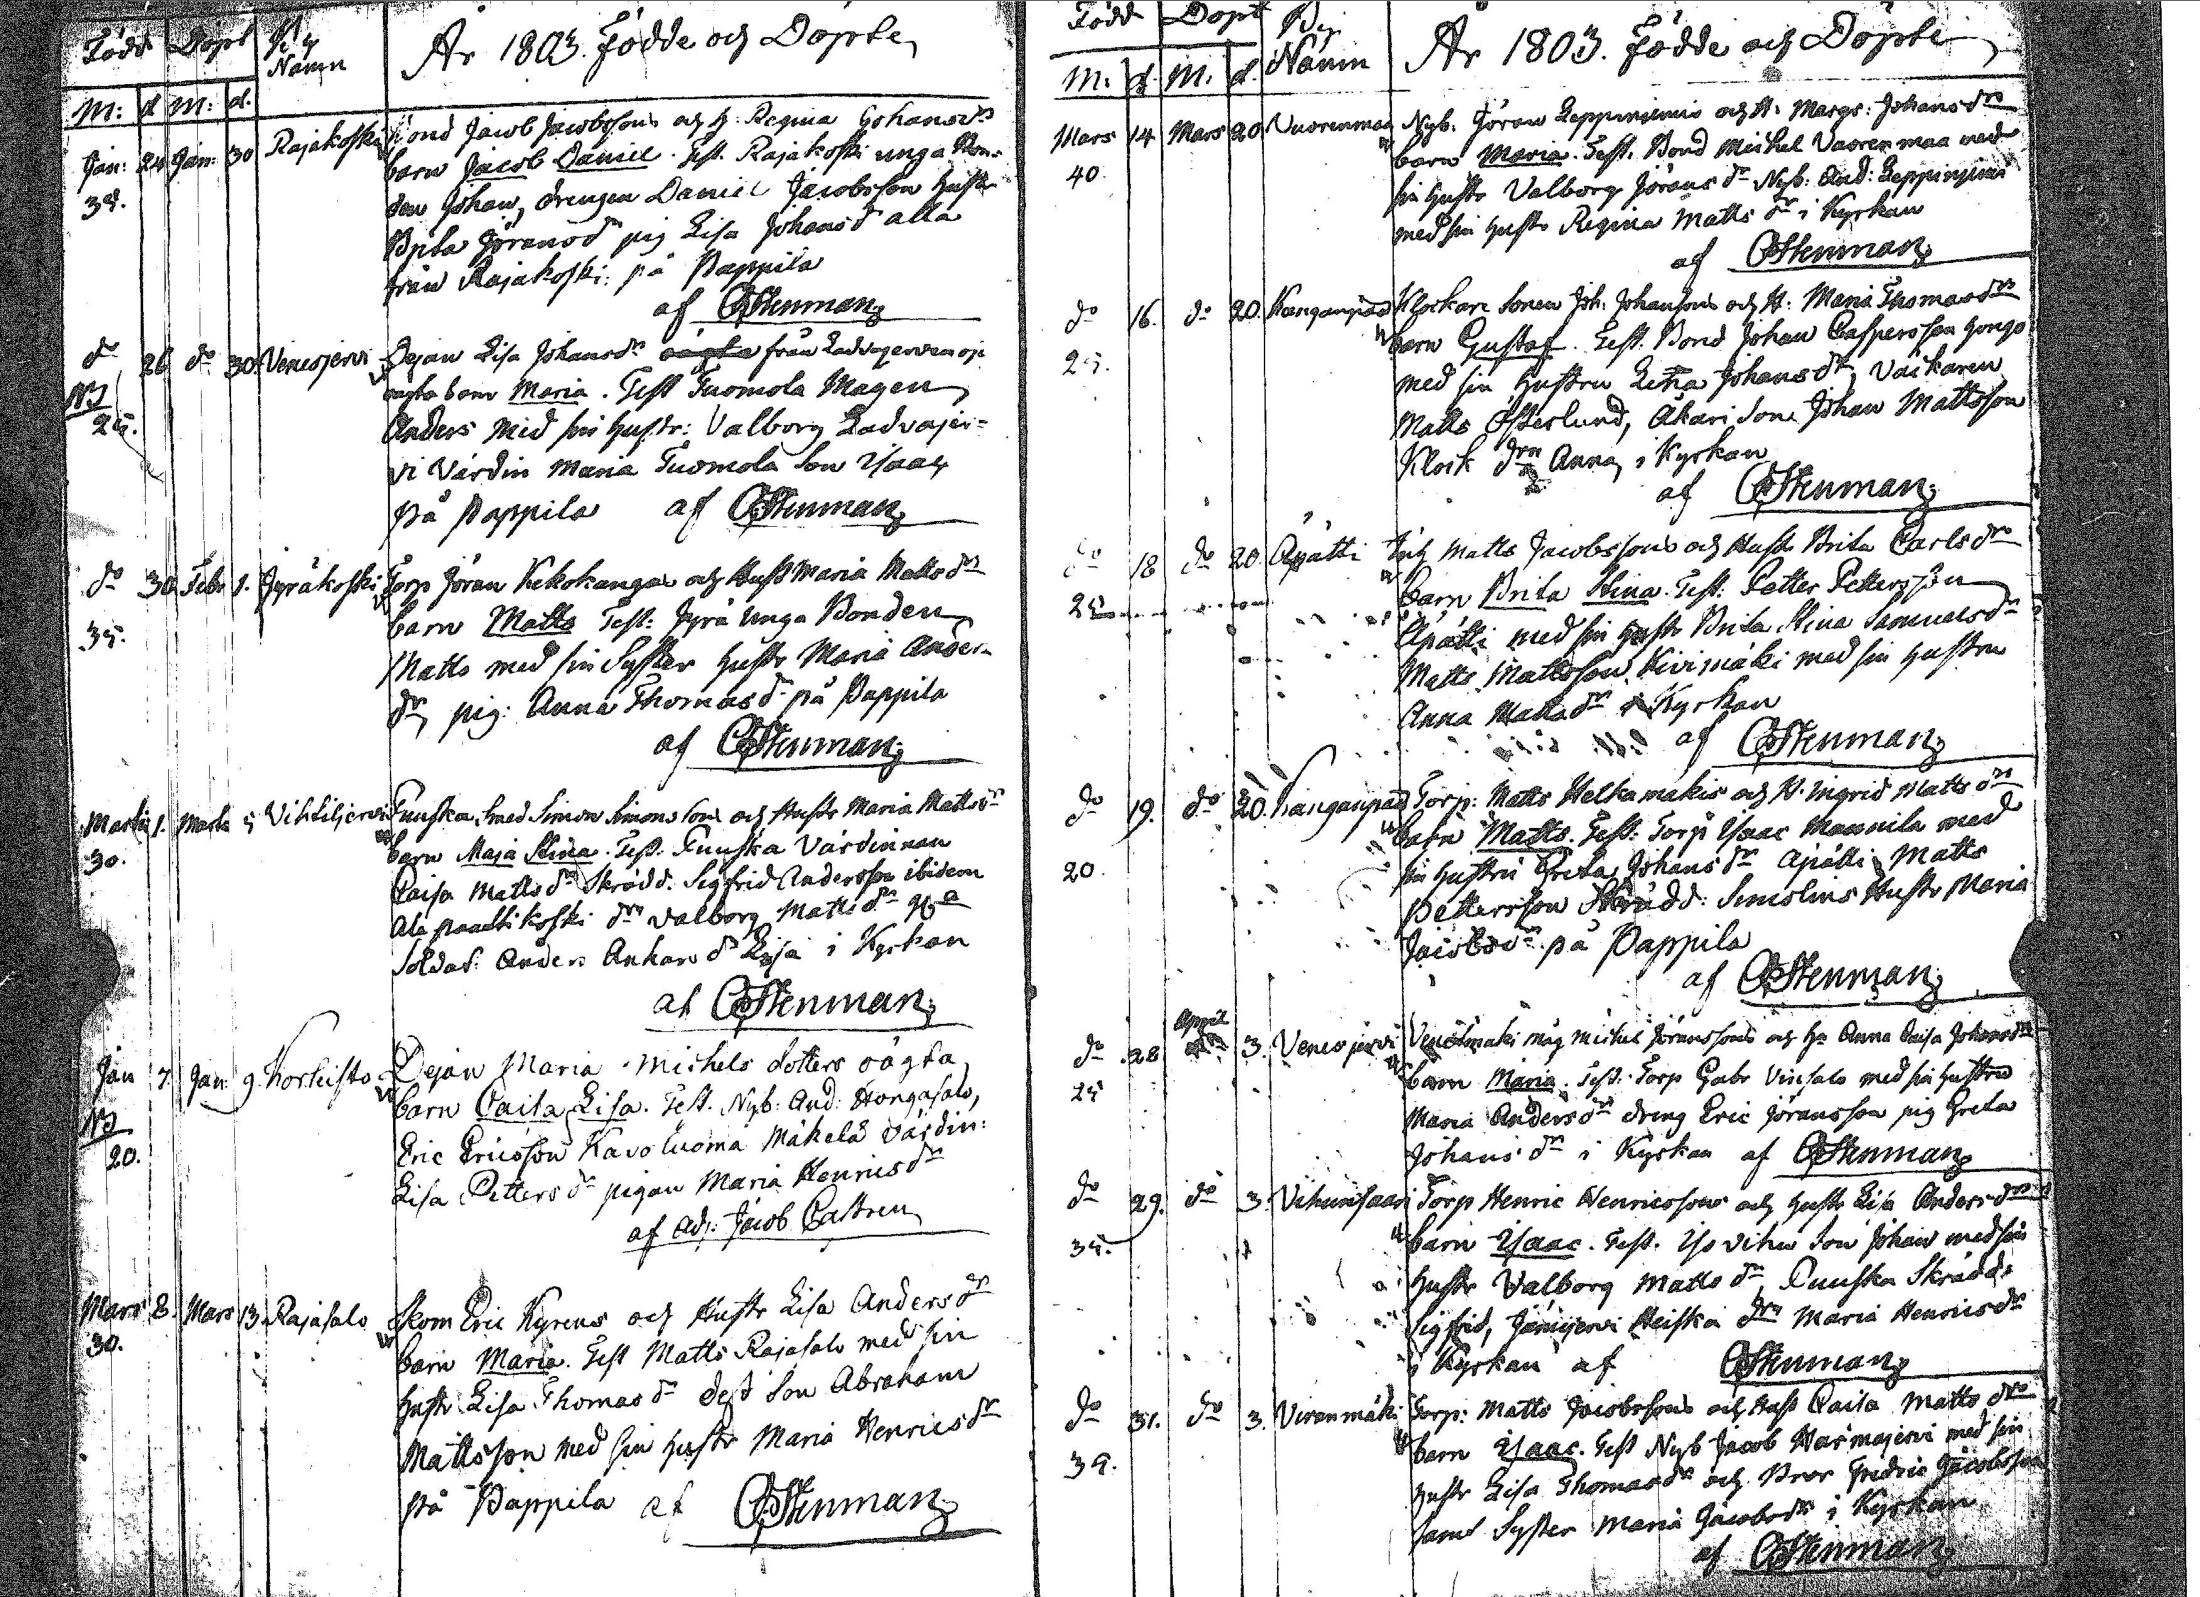 Född Döpt By Namn År 1803. Födde och Döpte
M: d M: d.
Jan: 24 Jan: 30 Rajakoski Bond Jacob Jacobssons och H: Regina Johansdr
barn Jacob Daniel. Test. Rajakoski unga Bon-
38. den Johan, drengen Daniel Jacobsson Hustr
Brita Göransdr pig Lisa Johansdr alla
från Rajakoski: på Pappila
af CStenman
do 26 do 30. Venesjervi Pejan Lisa Johansdr från
ägta barn Maria. Test Tuomola Magen
25. Anders med sin Hustr: Valborg Ladvajer-
vi Värdin Maria Tuomola Son Isaac
på Pappila af CStenman
do 30 Febr 1. Jyräkoski Torp Jöran Kekokangas och Hust Maria Mattsdr
barn Matts Test: Jyrä Unga Bonden
35. Matts med sin Syster Hustr Maria Anders
dr, pig: Anna Thomasdr på Pappila
af CStenman
1. 5 Vihtiljervi Simon Simonssons och Hustr Maria Mattsdr
30. barn Maja Stina. Test. Puuska Värdinnan
Caisa Mattsdr Skrädd. Sigfrid Andersson ibidem
Ala dr Valborg Mattsdr
Soldat: Anders Ankars dr Lisa i Kyrkan
af CStenman
Jan 7. Jan: 9. Korhisto Pejan Maria Michels dotters oägta
barn Caisa Lisa. Test. Nyb: And: Hongasalo,
20. Eric Ericsson Kavoluoma Mäkelä värdin:
Lisa Pettersdr pigan Maria Henricsdr
af Adj: Jacob Castren
Mars 8. Mars 13. Rajasalo Skom Eric Kyrens och Hustr Lisa Andersdr
30. barn Maria. Test Matts Rajasalo med sin
Hustr Lisa Thomasdr dess Son Abraham
Mattsson med sin Hustr Maria Henricsdr
på Pappila af CStenman
Född Döpt By Namn År 1803. Födde och Döpte
M: d. M: d.
Mars 14 Mars 20. Vuorenmaa Nyb. Jöran Leppiniemis och H: Margr: Johansdr
40. barn Maria. Test. Bond Michel Vuorenmaa med
sin Hustr Valborg Jöransdr Nyb: And: Leppiniemi
med sin Hustr Regina Mattsdr i Kyrkan
af CStenman
do 16. do 20. Kanganpää Klockare Sonen Joh: Johansons och H: Maria Thomasdr
25. barn Gustaf. Test. Bond Johan Caspersson Hongo
med sin Hustru Lena Johansdr,
Matts Österlund, Äkäri Son Johan Mattsson
Klock drn Anna, i Kyrkan
af CStenman
do 18 do 20. Apätti Inh Matts Jacobssons och Hustr Brita Carlsdr
25 barn Brita Stina. Test: Petter Pettersson
Apätti med sin Hustr Brita Stina Samuelsdr
Matts Mattsson Kivimäki med sin Hustru
Anna Mattsdr i Kyrkan
af CStenman
do 19. do 20. Kanganpää Torp: Matts Helkamäkis och H. Ingrid Mattsdr
barn Matts. Test: Torp Isaac Mannila med
20. sin Hustru Greta Johansdr Apätti Matts
Pettersson Skrädd: Hustr Maria
Jacobsdr på Pappila
af CStenman
do 28 April 3. Venesjervi måg Michel Jöranssons och H: Anna Caisa Johansdr
25 barn Maria. Test: Torp Gabr Vinsalo med sin Hustru
Maria Andersdr dreng Eric Jöransson pig Greta
Johansdr i Kyrkan af CStenman
do 29. do 3. Vihunisaari Torp Henric Henricssons och Hustr Lisa Andersdr
35. barn Isaac. Test. Isovihu Son Johan med sin
Hustr Valborg Mattsdr Puuska Skrädd:
Sigfrid, Jämijervi Heiska drn Maria Henricsdr
i Kyrkan af CStenman
do 31. do 3. Virenmäki Torp: Matts Jacobssons och Hust Caisa Mattsdr
barn Isaac. Test Nyb Jacob Harmajervi med sin
39. Hustr Lisa Thomasdr och Bror Fredric Jacobsson
samt Syster Maria Jacobsdr i Kyrkan
af CStenman